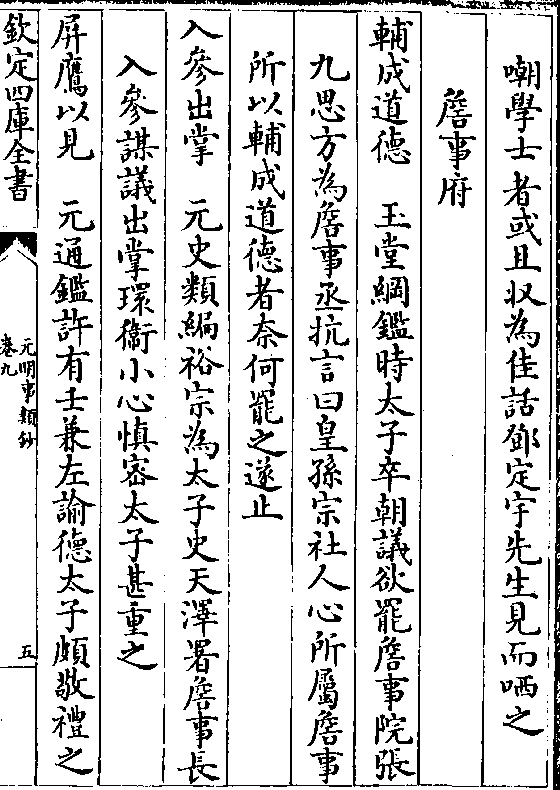 嘲學士者或且収為佳話鄧定宇先生見而哂之
詹事府
輔成道德　玉堂綱鑑時太子卒朝議欲罷詹事院張
九思方為詹事丞抗言曰皇孫宗社人心所屬詹事
所以輔成道德者奈何罷之遂止
入參出掌　元史類編裕宗為太子史天澤署詹事長
入參謀議出掌環衞小心慎密太子甚重之
屏鷹以見　元通鑑許有壬兼左諭德太子頗敬禮之
欽定四庫全書
元明事類鈔
卷九
五